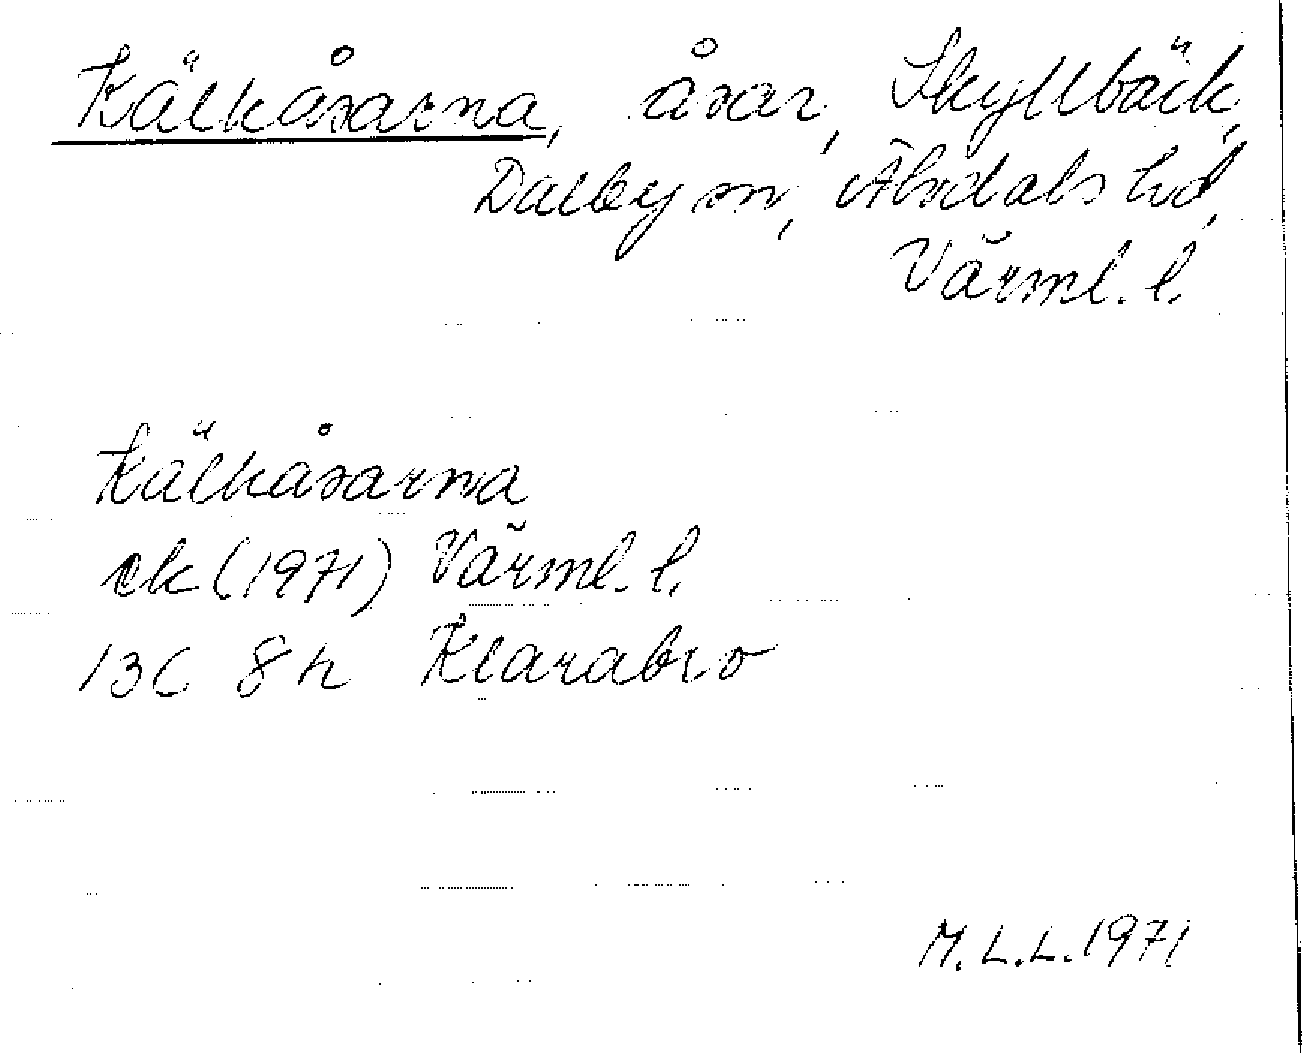 Kälkåsarna, åsar, Skyllbäck,
Dalby sn, Älvdals hd,
Värml. l.
Kälkåsarna
ek (1971) Värml. l.
13C 8h Klarabro
M. L. L. 1971